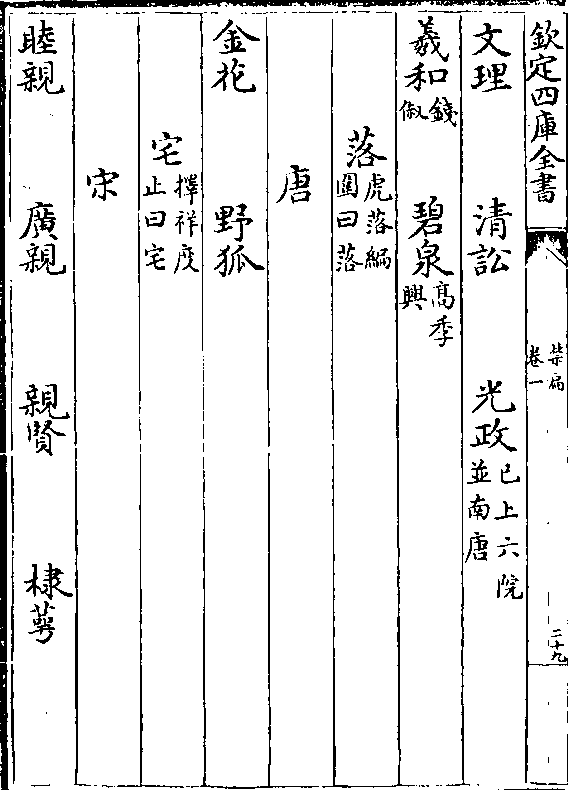 欽定四庫全書 禁扁 卷一 二十九
文理 清訟 光政 已上六院並南唐
羲和 錢俶 碧泉 高季興
落 虎落編圍曰落
唐
金花 野狐
宅 擇祥度止曰宅
宋
睦親 廣親 親賢 棣萼